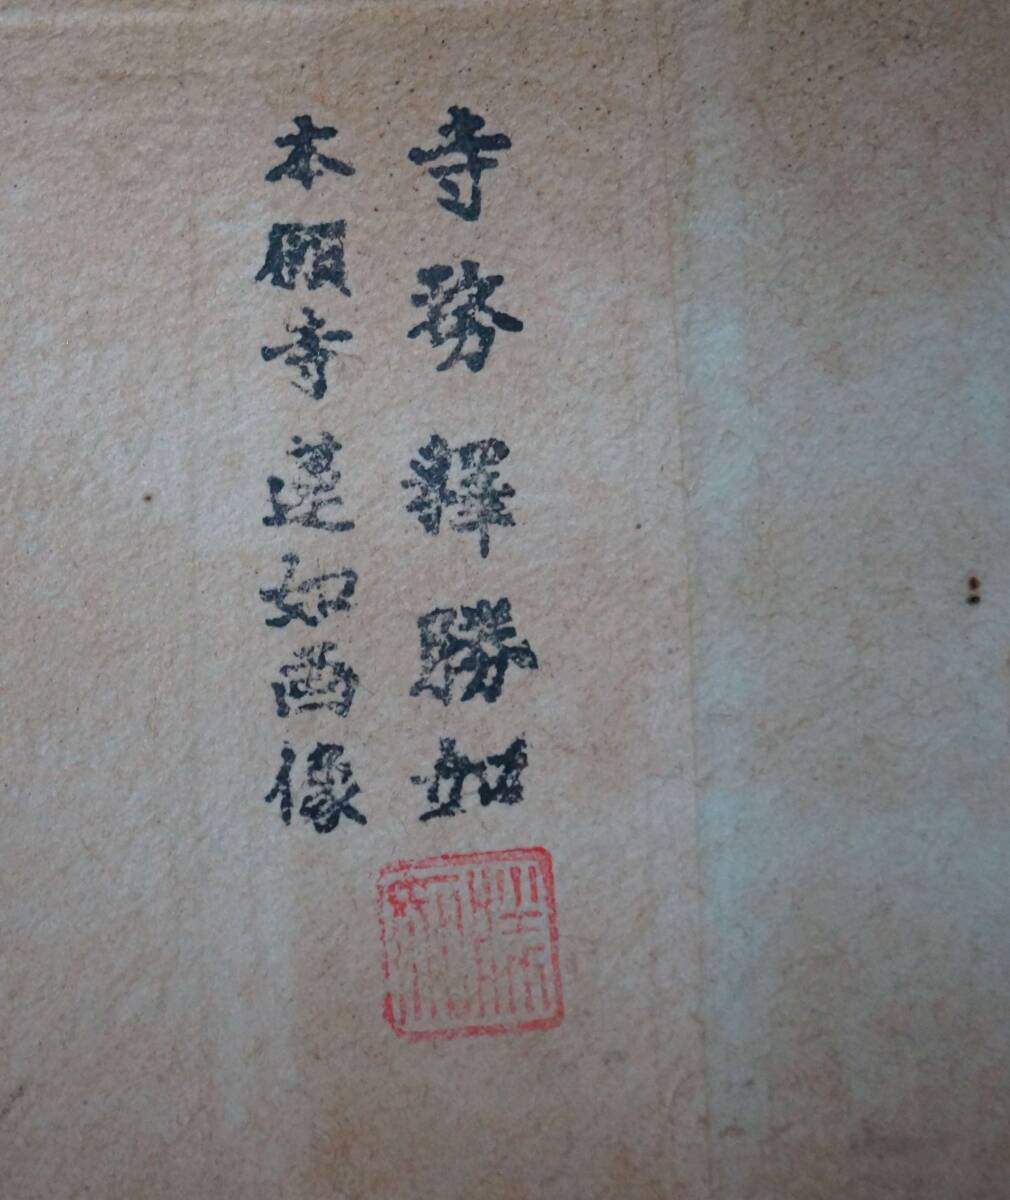 寺務釋勝如
本願寺蓮如画像